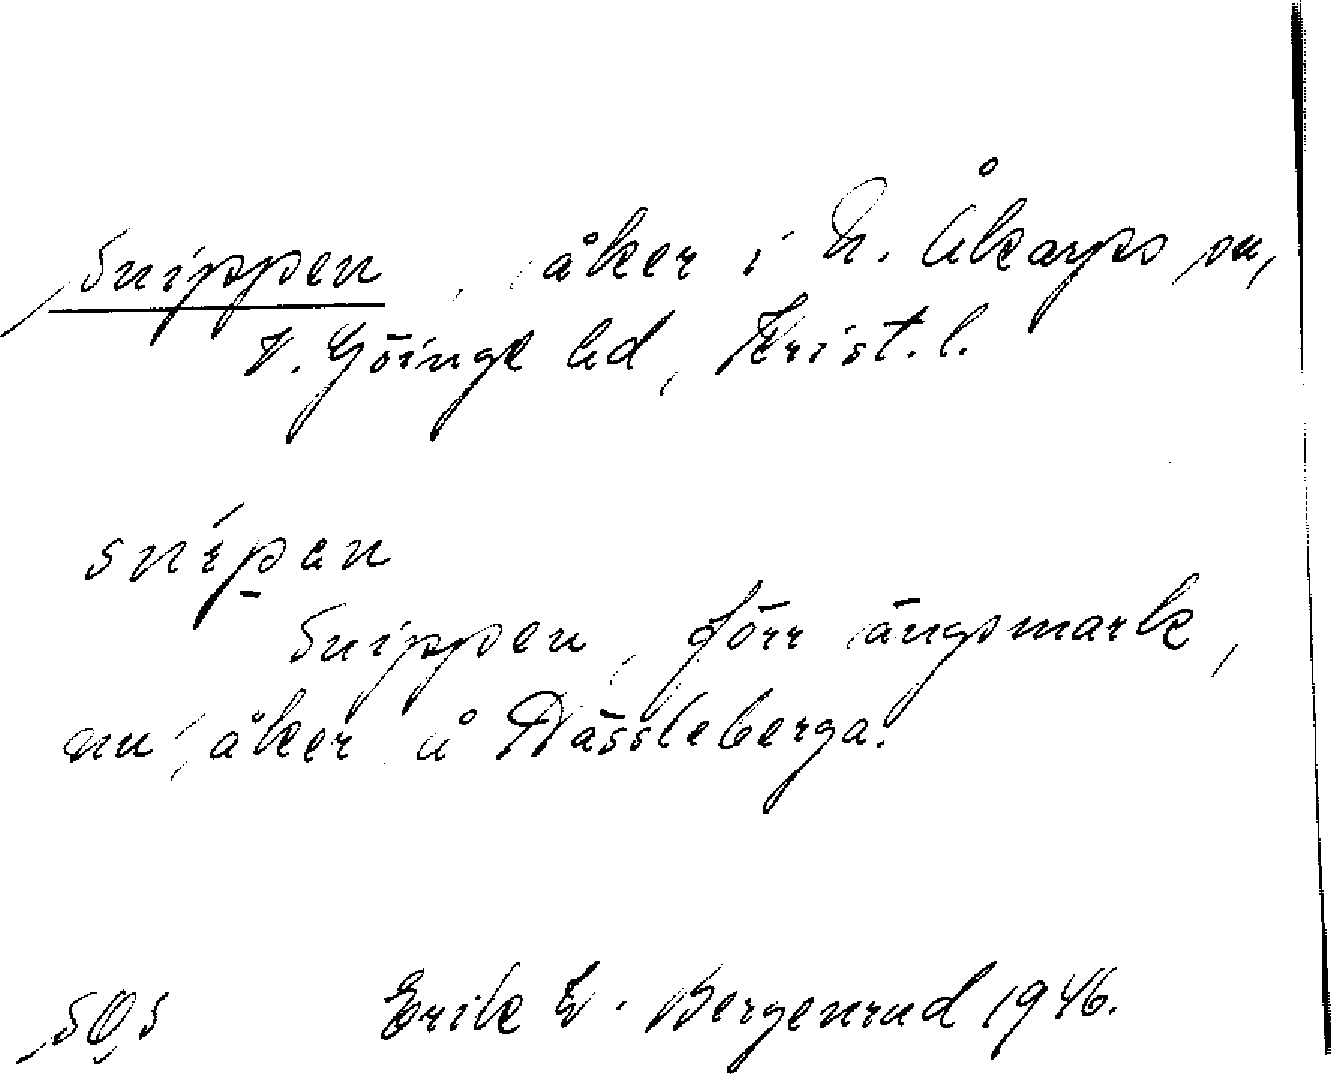 Snippen, åker i N. Åkarps sn,
V. Göinge hd, Krist. l.
snípan
Snippen, förr ängsmark,
nu åker å Nässleberga.
Erik E. Bergenrud 1946.